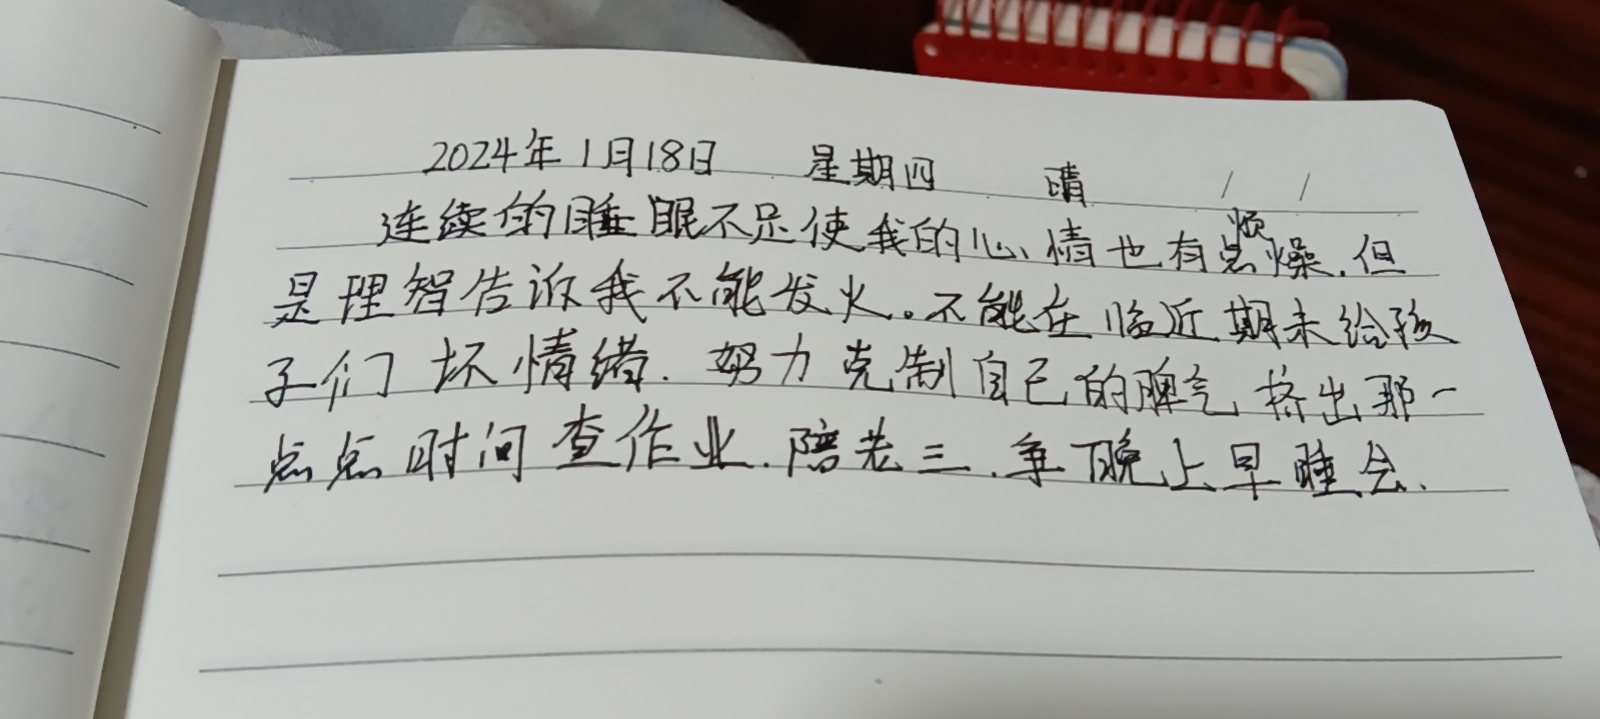 2024年1月18日 星期四 晴 / /
连续的睡眠不足使我的心情也有点烦燥.但
是理智告诉我不能发火。不能在临近期末给孩
子们坏情绪.努力克制自己的脾气,挤出那一
点点时间查作业.陪老三.争取晚上早睡会.